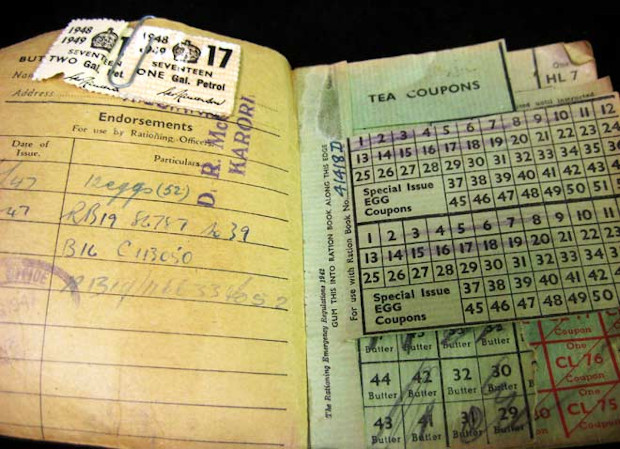 1948
1949
SEVENTEEN
TWO Gal. Pet
1948
17
SEVENTEEN
ONE Gal. Petrol
BUT
Nam
Address
Endorsements
For use by Rationing Officer
Date of
Issue.
Particulars
/47
Eggs (52)
47
RB19
39
B16 C113050
D. R. Mc
KARORI
The Rationing Emergency Regulations 1942
GUM THIS INTO RATION BOOK ALONG THIS EDGE
For use with Ration Book No.
TEA COUPONS
One
HL 7
1 2 3 4 5 6 7 8 9 10 11 12
13 14 15 16 17 18 19 20 21 22 23 24
25 26 27 28 29 30 31 32 33 34 35 36
Special Issue
EGG
Coupons
37 38 39 40 41 42 43 44
45 46 47 48 49 50 51 52
1 2 3 4 5 6 7 8 9 10 11
13 14 15 16 17 18 19 20 21 22 23
25 26 27 28 29 30 31 32 33 34 35
Special Issue
EGG
Coupons
37 38 39 40 41 42 43
45 46 47 48 49 50 51
Butter Butter Butter Butter
44 42 32 30
Butter Butter Butter Butter
43 41 31 29
Butter Butter Butter Butter
Coupon
One
CL 76
Coupon
One
CL 75
Coupon